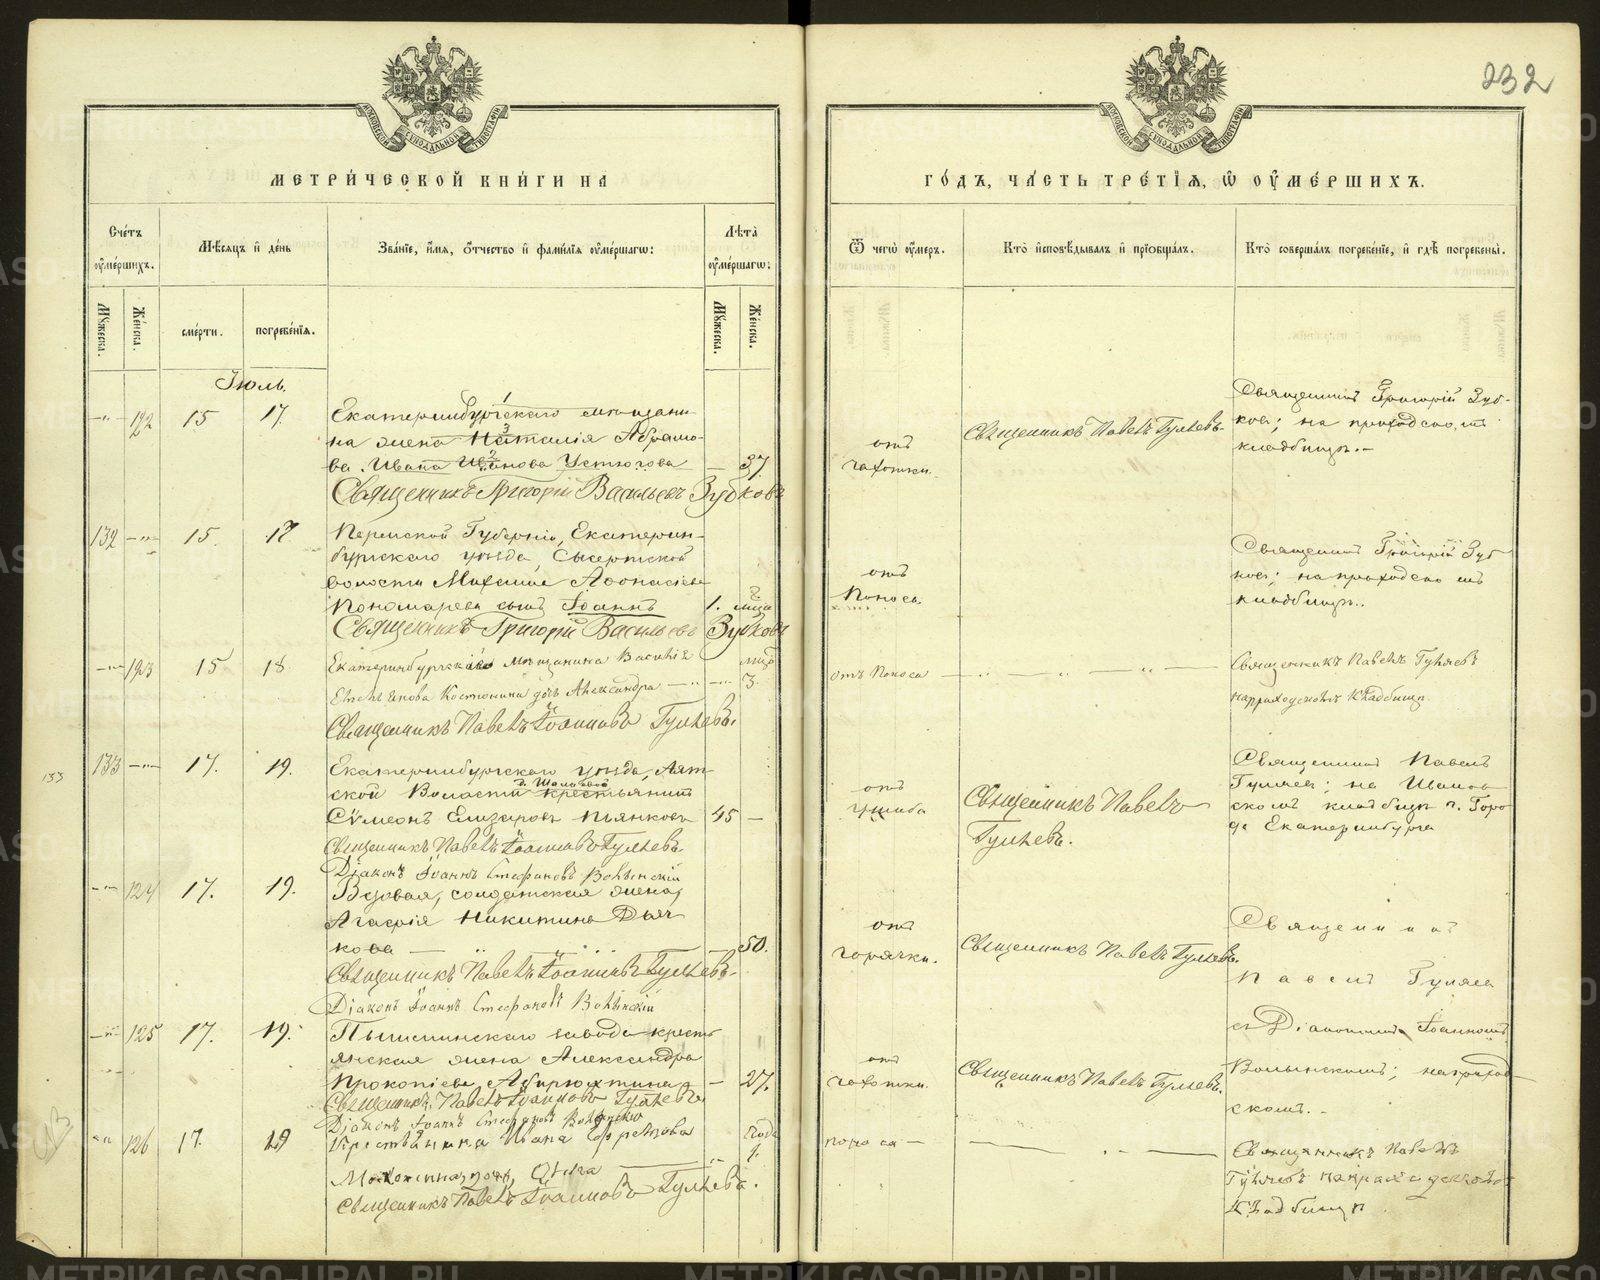 232
МОСКОВСКОЙ СѴНОДАЛЬНОЙ ТИПОГРАФІИ
МОСКОВСКОЙ СѴНОДАЛЬНОЙ ТИПОГРАФІИ
МЕТРИ́ЧЕСКОЙ КНИ́ГИ НА
ГО́ДЪ, ЧА́СТЬ ТРЕ́ТІѦ, Ѡ҆ ОУ҆МЕ́РШИХЪ.
Сче́тъ оу҆ме́ршихъ.
Мѣ́сѧцъ и҆ де́нь
Зва́нїе, и҆́мѧ, ѻ҆́тчество и҆ фами́лїѧ оу҆ме́ршагѡ:
Лѣ́та оу҆ме́ршагѡ:
Ѿ чегѡ̀ оу҆́меръ.
Кто̀ и҆сповѣ́дывалъ и҆ прїѡбща́лъ.
Кто̀ соверша́лъ погребе́нїе, и҆ гдѣ̀ погребены̀.
Мꙋ́жеска.
Же́нска.
сме́рти.
погребе́нїѧ.
Мꙋ́жеска.
Же́нска.
Іюль.
122 15 17. Екатеринбургскаго мѣщани-
на жена Наталія Абрамо-
ва. Ивана Иванова Устюгова — 37.
Священникъ Григорій Васильевъ Зубковъ
отъ
чахотки.
Священникъ Павелъ Гуляевъ.
Священникъ Григорій Зуб-
ковъ; на приходскомъ
кладбищѣ.
132 15. 17 Пермской Губерніи, Екатерин-
бургскаго уѣзда, Сысертской
волости Михаила Аѳонасьева
Пономарева сынъ Іоаннъ 1.
Священникъ Григорій Васильевъ Зубковъ
отъ
Поноса.
Священникъ Григорій Зуб
ковъ; на приходскомъ
кладбищѣ.
123 15 18 Екатеринбургскаго мѣщанина Василія
Костюнина дочь Александра 3.
Священникъ Павелъ Іоанновъ Гуляевъ.
отъ Поноса
Священникъ Павелъ Гуляевъ
на приходскомъ Кладбищѣ
133
133 17. 19. Екатеринбургскаго уѣзда, Аят-
ской Волости крестьянинъ
Сѵмеонъ Елизаровъ Пьянковъ 45 —
Священникъ Павелъ Іоанновъ Гуляевъ.
Діаконъ Іоаннъ Стефановъ Волынскій
отъ
ушиба
Священникъ Павелъ
Гуляевъ.
Священникъ Павелъ
Гуляевъ; на Иванов
скомъ кладбищѣ г. Горо
да Екатеринбурга
124 17. 19. Вдовая, солдатская жена,
Агафія Никитина Дья
кова — 50.
Священникъ Павелъ Іоанновъ Гуляевъ.
Діаконъ Іоаннъ Стефановъ Волынскій
отъ
горячки.
Священникъ Павелъ Гуляевъ.
Священникъ
Павелъ Гуляевъ
съ Діакономъ Іоанномъ
Волынскимъ; на приход-
скомъ.
125 17. 19. Пышминскаго завода кресть
янская жена Александра
Прокопіева — 27.
Священникъ Павелъ Іоанновъ Гуляевъ
Діаконъ Іоаннъ Стефановъ Волынскій
отъ
чахотки.
Священникъ Павелъ Гуляевъ.
126 17. 19 Крестьянина Ивана
дочь, Ольга
года
1.
Священникъ Павелъ Іоанновъ Гуляевъ.
поноса —
Священникъ Павелъ
Гуляевъ на приходскомъ
Кладбищѣ
METRIKI.GASO-URAL.RU